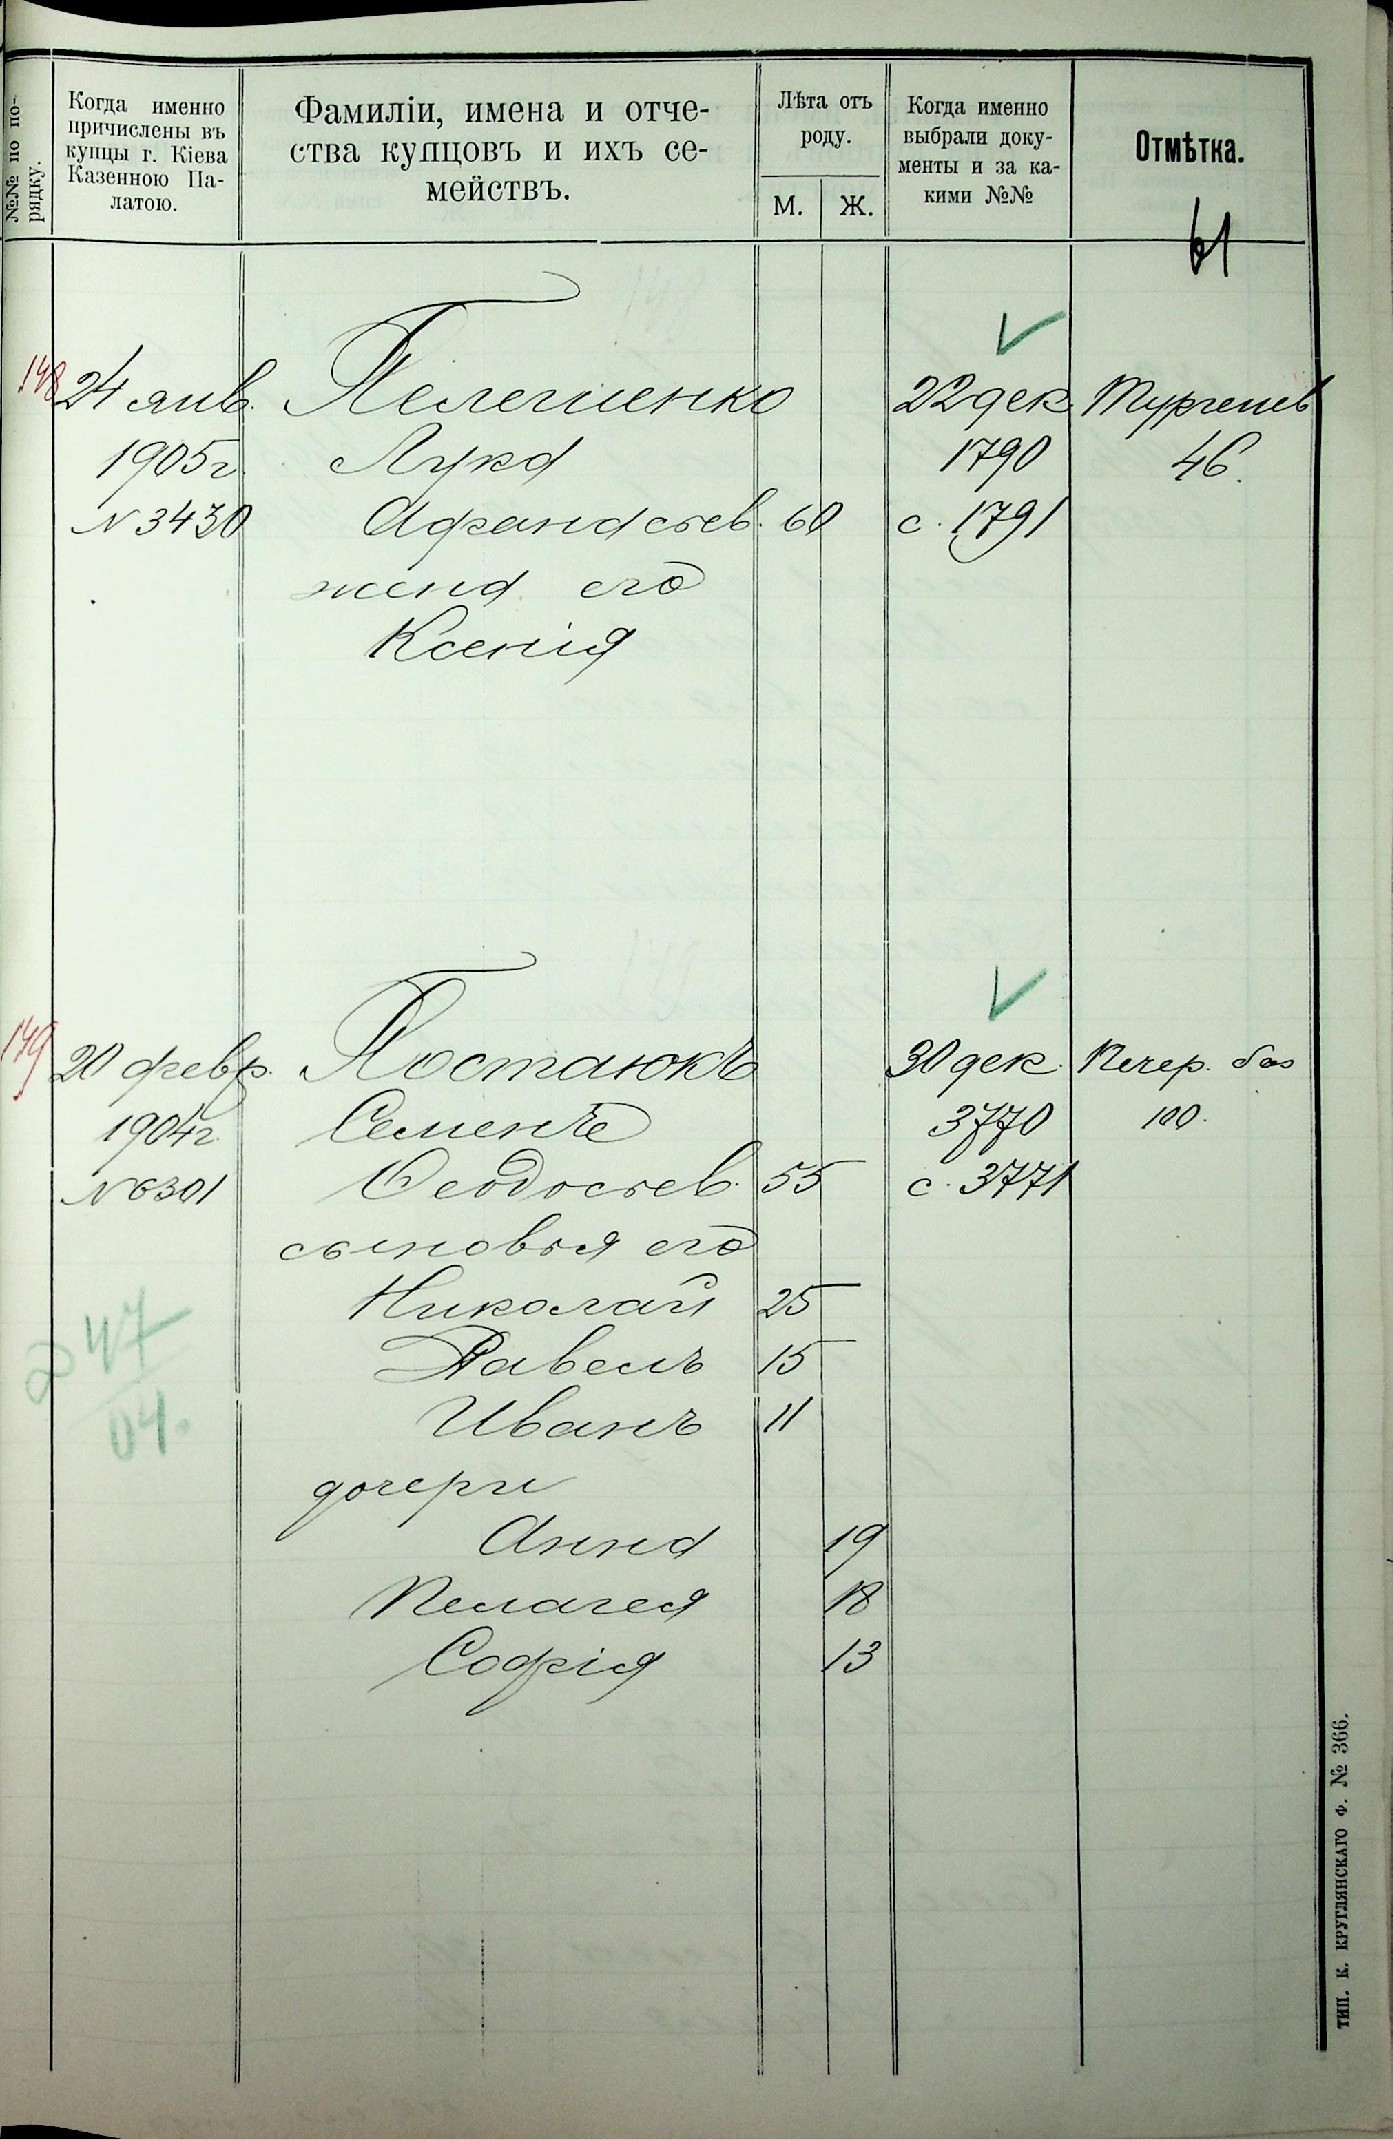 №№ по по-
рядку.
Когда именно
причислены въ
купцы г. Кіева
Казенною Па-
латою.
Фамиліи, имена и отче-
ства купцовъ и ихъ се-
мействъ.
Лѣта отъ
роду.
М. Ж.
Когда именно
выбрали доку-
менты и за ка-
кими №№
Отмѣтка.
61
148 24 янв. Пелешенко 22 дек. Тургенев
1905 г. Лука 1790 46.
N 3430 Афанасьев. 60 с. 1791
жена его
Ксенія
149 20 февр. Постаюкъ 30 дек. Печер. баз
1904 г. Семенъ 3770 100.
N 6301 Феодосьев. 55 с. 3771
сыновья его
Николай 25
Павелъ 15
Иванъ 11
247
04.
дочери
Анна 19
Пелагея 18
Софія 13
ТИП. К. КРУГЛЯНСКАГО Ф. № 366.